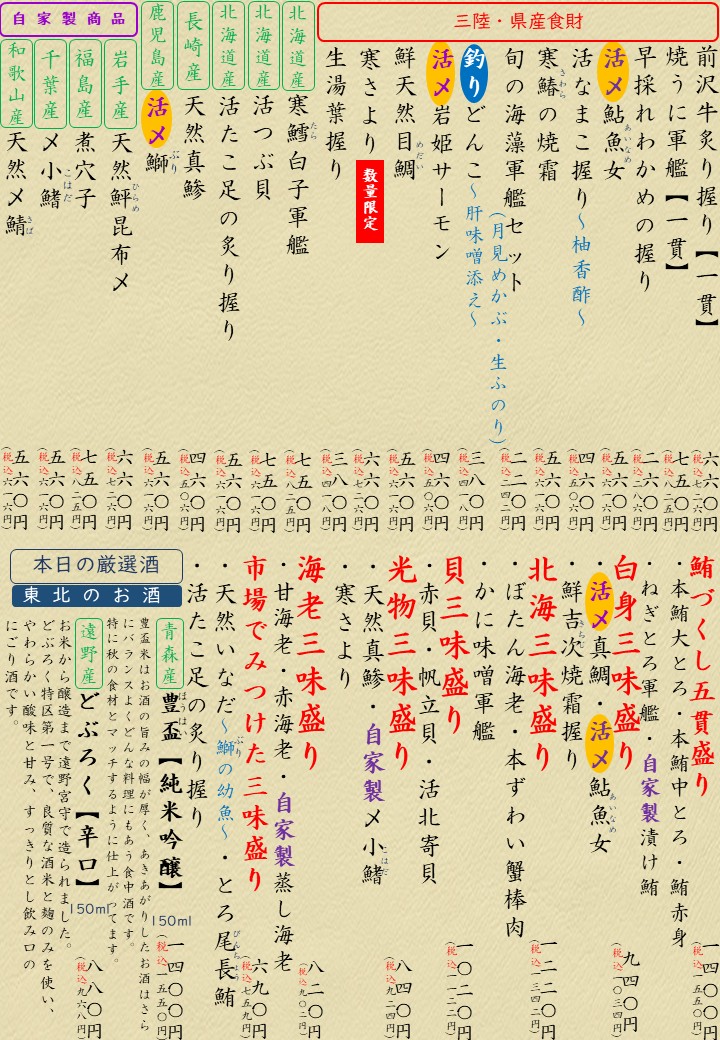 三陸・県産食財
前沢牛炙り握り【一貫】
六六〇円
(税込七二六円)
焼うに軍艦【一貫】
七五〇円
(税込八二五円)
早採れわかめの握り
二六〇円
(税込二八六円)
活〆鮎魚女
あいなめ
五六〇円
(税込六一六円)
活なまこ握り〜柚香酢〜
四六〇円
(税込五〇六円)
寒鰆の焼霜
さわら
五六〇円
(税込六一六円)
旬の海藻軍艦セット
(月見めかぶ・生ふのり)
二二〇円
(税込二四二円)
釣りどんこ〜肝味噌添え〜
三八〇円
(税込四一八円)
活〆岩姫サーモン
四六〇円
(税込五〇六円)
鮮天然目鯛
めだい
五六〇円
(税込六一六円)
寒さより
数量限定
六六〇円
(税込七二六円)
生湯葉握り
三八〇円
(税込四一八円)
北海道産
寒鱈白子軍艦
たら
七五〇円
(税込八二五円)
北海道産
活つぶ貝
七五〇円
(税込八二五円)
北海道産
活たこ足の炙り握り
五六〇円
(税込六一六円)
長崎産
天然真鯵
四六〇円
(税込五〇六円)
鹿児島産
活〆鰤
ぶり
五六〇円
(税込六一六円)
自家製商品
岩手産
天然鮃昆布〆
ひらめ
六六〇円
(税込七二六円)
福島産
煮穴子
七五〇円
(税込八二五円)
千葉産
〆小鰭
こはだ
五六〇円
(税込六一六円)
和歌山産
天然〆鯖
さば
五六〇円
(税込六一六円)
鮪づくし五貫盛り
・本鮪大とろ・本鮪中とろ・鮪赤身
・ねぎとろ軍艦・自家製漬け鮪
一四〇〇円
(税込一五四〇円)
白身三味盛り
・活〆真鯛・活〆鮎魚女
あいなめ
・鮮吉次焼霜握り
きちじ
九四〇円
(税込一〇三四円)
北海三味盛り
・ぼたん海老・本ずわい蟹棒肉
・かに味噌軍艦
一二二〇円
(税込一三四二円)
貝三味盛り
・赤貝・帆立貝・活北寄貝
一〇二〇円
(税込一一二二円)
光物三味盛り
・天然真鯵・自家製〆小鰭
こはだ
・寒さより
八四〇円
(税込九二四円)
海老三味盛り
・甘海老・赤海老・自家製蒸し海老
八二〇円
(税込九〇二円)
市場でみつけた三味盛り
・天然いなだ〜鰤の幼魚〜・とろ尾長鮪
ぶり
びんちょう
・活たこ足の炙り握り
六九〇円
(税込七五九円)
本日の厳選酒
東北のお酒
青森産
豊盃【純米吟醸】
ほうはい
150ml
一四〇〇円
(税込一五四〇円)
豊盃米はお酒の旨みの幅が厚く、あきあがりしたお酒はさら
にバランスよくどんな料理にもあう食中酒です。
特に秋の食材とマッチするように仕上がってます。
遠野産
どぶろく【辛口】
150ml
八八〇円
(税込九六八円)
お米から醸造まで遠野宮守で造られました。
どぶろく特区第一号で、良質な酒米と麹のみを使い、
やわらかい酸味と甘み、すっきりとし飲み口の
にごり酒です。